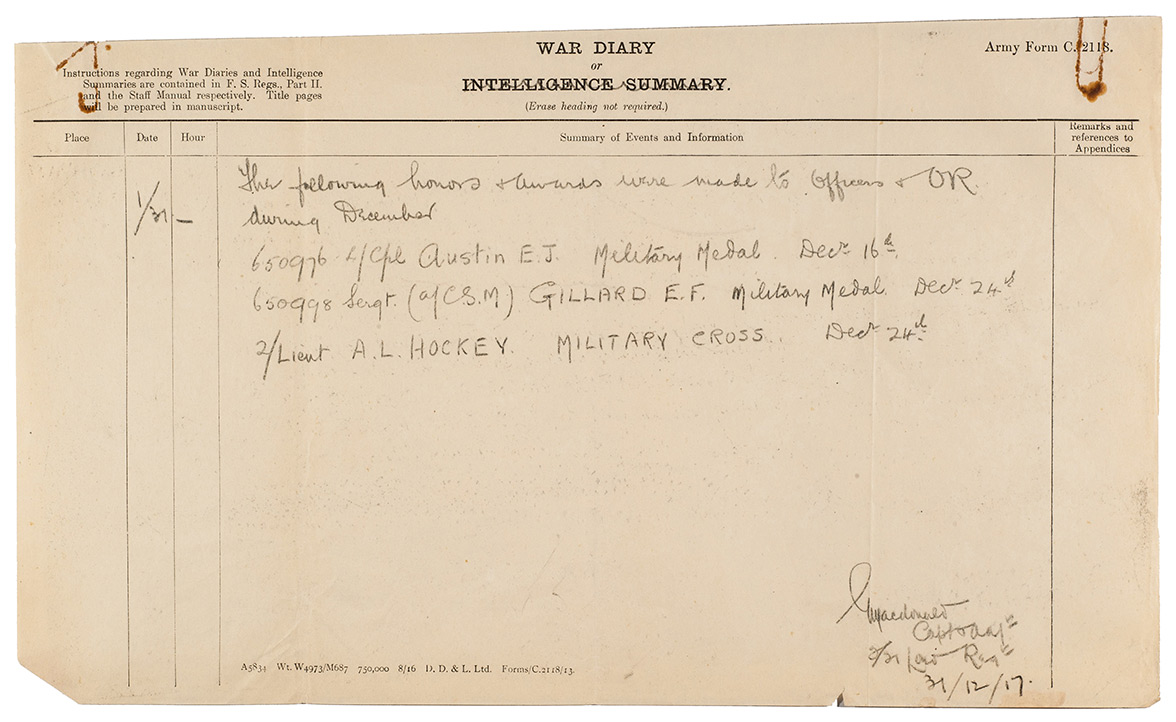 WAR DIARY
or
INTELLIGENCE SUMMARY.
(Erase heading not required.)
Army Form C. 2118.
Instructions regarding War Diaries and Intelligence
Summaries are contained in F. S. Regs., Part II.
and the Staff Manual respectively. Title pages
will be prepared in manuscript.
Place
Date
Hour
Summary of Events and Information
Remarks and
references to
Appendices
1/31 —
The following honors & awards were made to Officers & OR.
during December
650976 L/Cpl Austin E.J. Military Medal. Decr 16th.
650998 Sergt. (a/C.S.M) GILLARD E.F. Military Medal. Decr 24th
2/Lieut A.L. HOCKEY. MILITARY CROSS. Decr 24th
Macdonald
Capt & Adjt
Regt
31/12/17.
A5834 Wt. W4973/M687 750,000 8/16 D. D. & L. Ltd. Forms/C.2118/13.